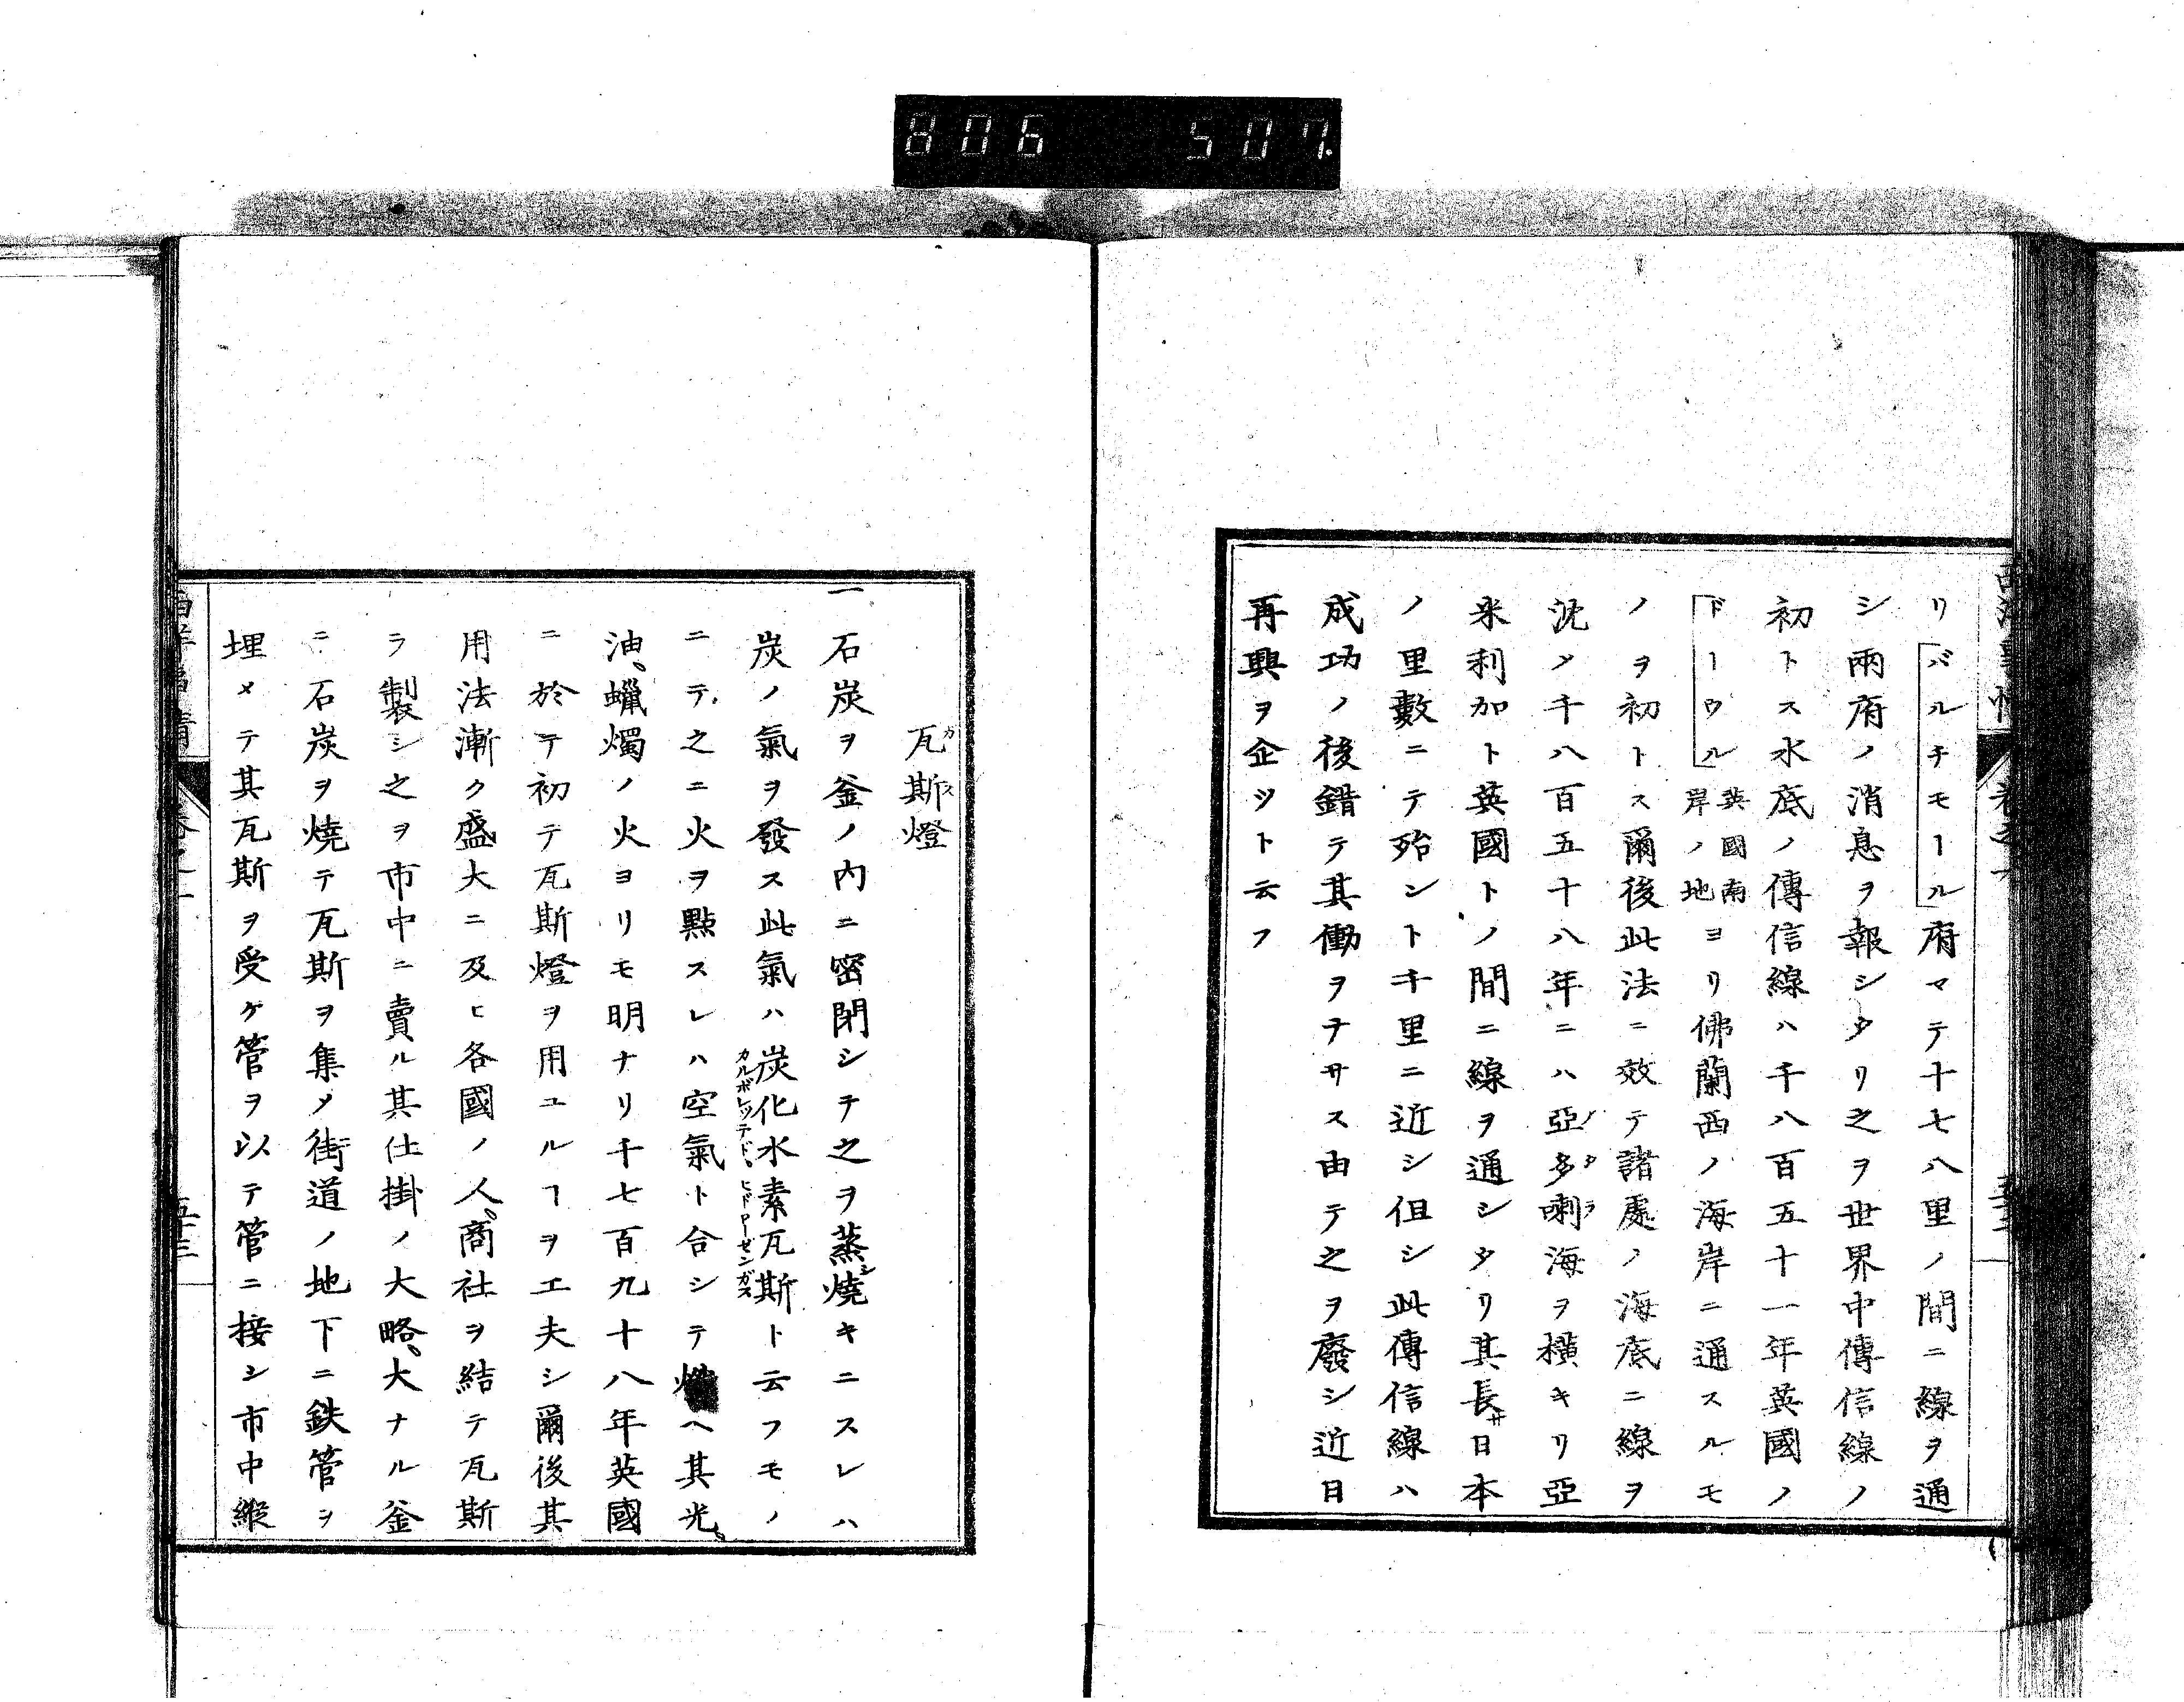 806 507
リ「バルチモール」府マテ十七八里ノ間ニ線ヲ通
シ兩府ノ消息ヲ報シタリ之ヲ世界中傳信線ノ
初トス水底ノ傳信線ハ千八百五十一年英國ノ
「ドーウル」英國南岸ノ地ヨリ佛蘭西ノ海岸ニ通スルモ
ノヲ初トス爾後此法ニ效テ諸處ノ海底ニ線ヲ
沈メ千八百五十八年ニハ亞多喇海ヲ横キリ亞
米利加ト英國トノ間ニ線ヲ通シタリ其長サ日本
ノ里數ニテ殆ント千里ニ近シ但シ此傳信線ハ
成功ノ後錯テ其働ヲナサス由テ之ヲ廢シ近日
再興ヲ企ツト云フ
瓦斯燈
一石炭ヲ釜ノ内ニ密閉シテ之ヲ蒸シ燒キニスレハ
炭ノ氣ヲ發ス此氣ハ炭化水素瓦斯ト云フモノ
カルボレッテド、ヒドローゼンガス
ニテ之ニ火ヲ點スレハ空氣ト合シテ燃ヘ其光、
油、蠟燭ノ火ヨリモ明ナリ千七百九十八年英國
ニ於テ初テ瓦斯燈ヲ用ユルヿヲ工夫シ爾後其
用法漸ク盛大ニ及ヒ各國ノ人、商社ヲ結テ瓦斯
ヲ製シ之ヲ市中ニ賣ル其仕掛ノ大略、大ナル釜
ニ石炭ヲ燒テ瓦斯ヲ集メ街道ノ地下ニ鉄管ヲ
埋メテ其瓦斯ヲ受ケ管ヲ以テ管ニ接シ市中縱
西洋事情 卷之一 五十三